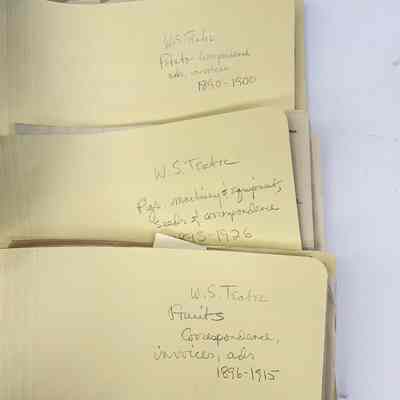 W.S. Teatre
Potato
ads, invoices
1890-1900
W.S. Teatre
Pigs, machinery & equipment,
seeds & correspondence
1895-1926
W.S. Teatre
Fruits
Correspondence,
invoices, ads
1896-1915